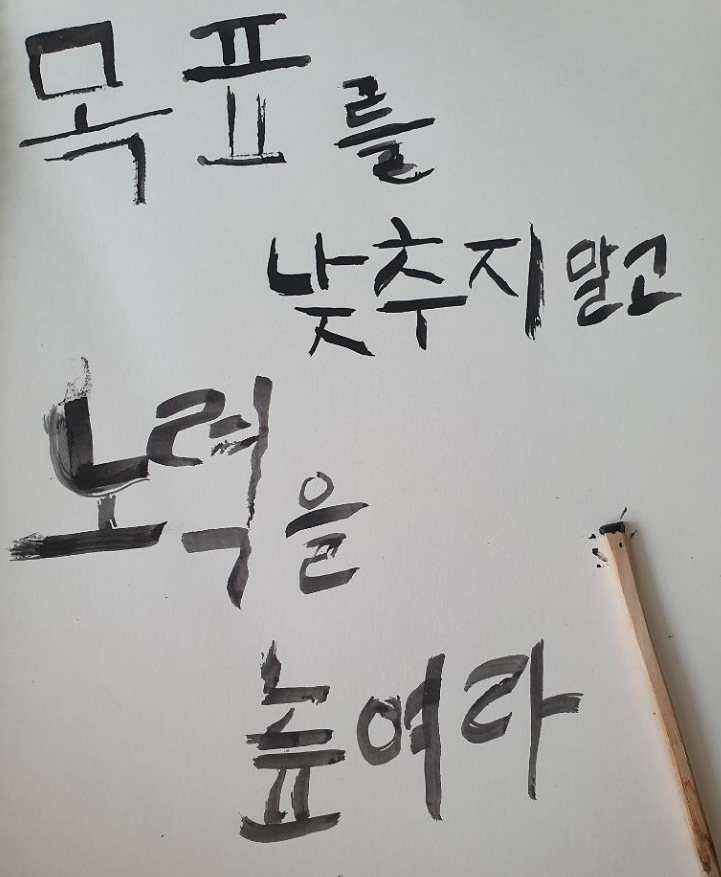 목표를
낮추지말고
노력을
높여라